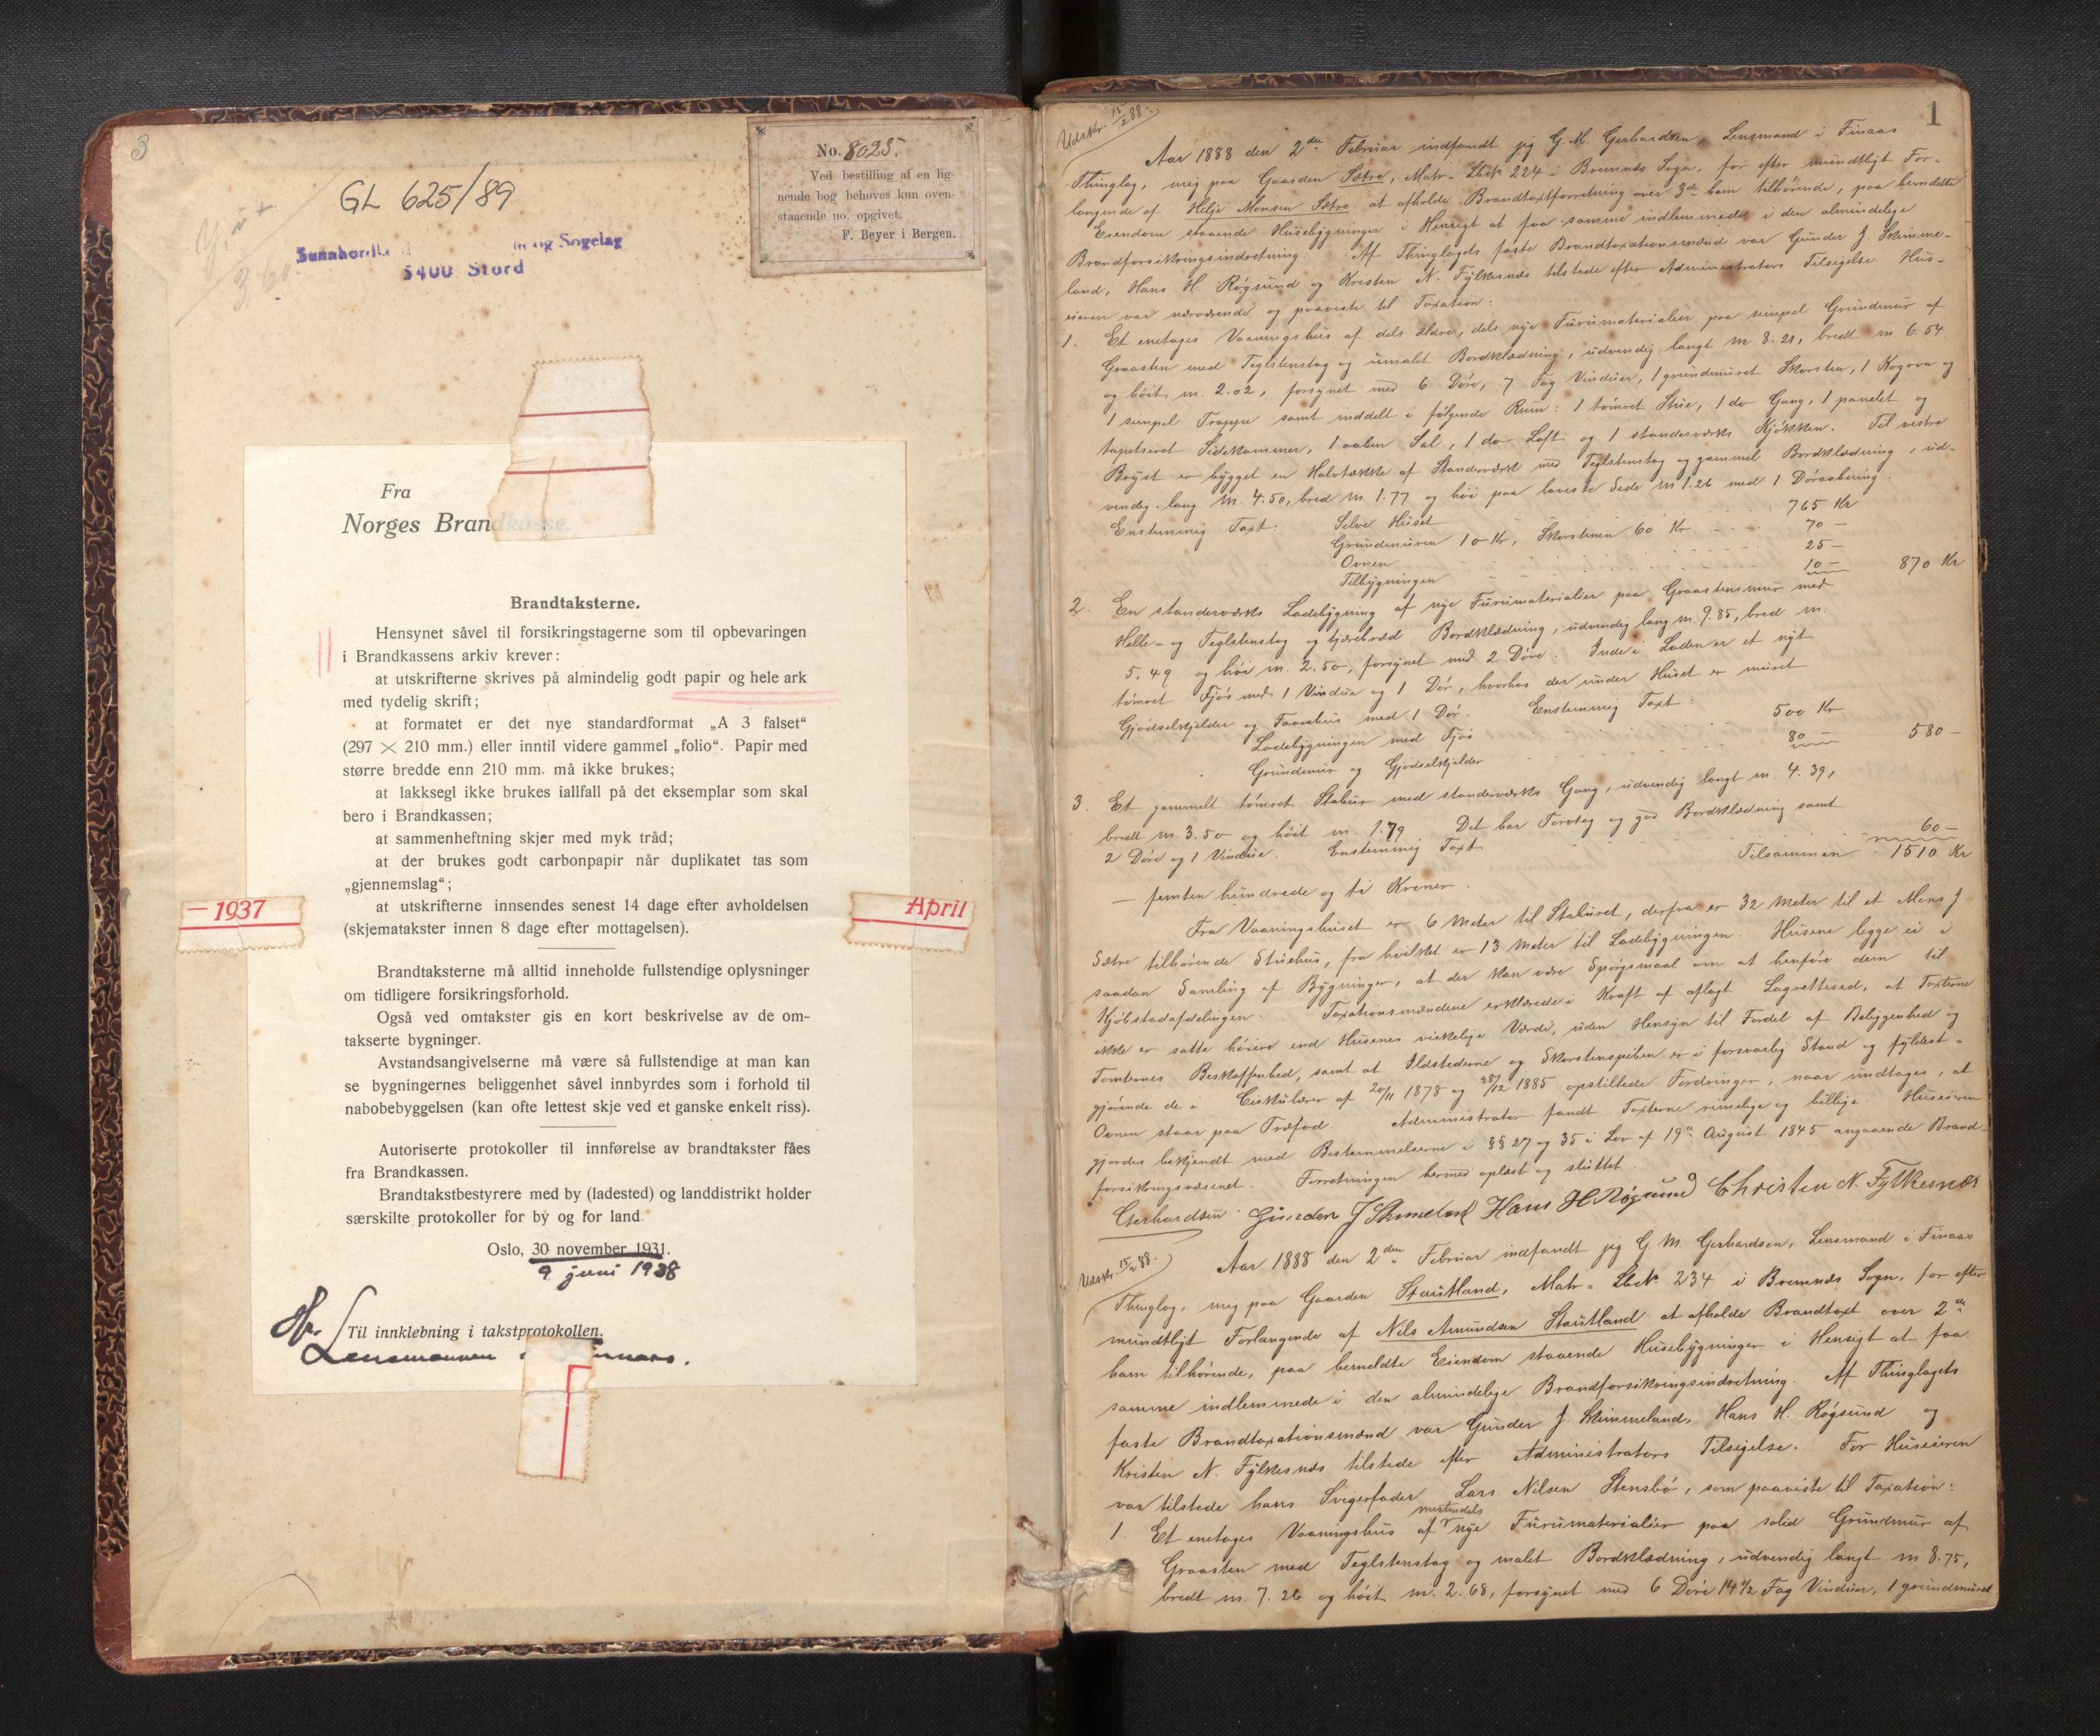 3
GL 625/89
og Sogelag
5400 Stord
No. 8025.
Ved bestilling af en lig-
nende bog behøves kun oven-
staaende no. opgivet.
F. Beyer i Bergen.
Fra
Norges Brandkasse.
Brandtaksterne.
Hensynet såvel til forsikringstagerne som til opbevaringen
i Brandkassens arkiv krever:
at utskrifterne skrives på almindelig godt papir og hele ark
med tydelig skrift;
at formatet er det nye standardformat „A 3 falset“
(297 × 210 mm.) eller inntil videre gammel „folio“. Papir med
større bredde enn 210 mm. må ikke brukes;
at lakksegl ikke brukes iallfall på det eksemplar som skal
bero i Brandkassen;
at sammenheftning skjer med myk tråd;
at der brukes godt carbonpapir når duplikatet tas som
„gjennemslag“;
at utskrifterne innsendes senest 14 dage efter avholdelsen
(skjematakster innen 8 dage efter mottagelsen).
— 1937
April
Brandtaksterne må alltid inneholde fullstendige oplysninger
om tidligere forsikringsforhold.
Også ved omtakster gis en kort beskrivelse av de om-
takserte bygninger.
Avstandsangivelserne må være så fullstendige at man kan
se bygningernes beliggenhet såvel innbyrdes som i forhold til
nabobebyggelsen (kan ofte lettest skje ved et ganske enkelt riss).
Autoriserte protokoller til innførelse av brandtakster fåes
fra Brandkassen.
Brandtakstbestyrere med by (ladested) og landdistrikt holder
særskilte protokoller for by og for land.
Oslo, 30 november 1931.
9 juni 1938
Til innklebning i takstprotokollen.
Hr.
Lensmannen
1
Udskr. 15/2 88.
Aar 1888 den 2den Februar indfandt jeg G. M. Gerhardsen, Lensmand i Finaas
Thinglag, mig paa Gaarden Sætre, Matr. Lbek 224 i Bremnæs Sogn, for efter mundtligt For-
langende af Helje Monsen Sætre at afholde Brandtaxtforretning over 3de ham tilhørende, paa bemeldte
Eiendom staaende Husebygninger i Hensigt at faa samme indlemmede i den almindelige
Brandforsikringsindretning. Af Thinglagets faste Brandtaxationsmænd var Gunder J. Skimme-
land, Hans H. Røgsund og Kristen N. Fylkesnæs tilstede efter Administrators Tilsigelse. Hus-
eieren var nærværende og paaviste til Taxation:
1. Et enetages Vaaningshus af dels ældre, dels nye Furumaterialier paa simpel Grundmur af
Graasten med Teglstenstag og umalet Bordklædning, udvendig langt m. 8.21, bredt m. 6.54
og höit m. 2.02, forsynet med 6 Döre, 7 Fag Vinduer, 1 grundmuret Skorsten, 1 Kogovn og
1 simpel Trappe samt inddelt i følgende Rum: 1 tömret Stue, 1 do Gang, 1 panelet og
tapetseret Sidekammer, 1 aaben Sal, 1 do Loft og 1 standerværks Kjökken. Til vestre
Bryst er bygget en Halvtække af Standerværk med Teglstenstag og gammel Bordklædning, ud-
vendig lang m. 4.50, bred m. 1.77 og höi paa laveste Side m 1.26 med 1 Döraabning.
Enstemmig Taxt: Selve Huset 765 Kr
Grundmuren 10 Kr, Skorstenen 60 Kr 70 —
Ovnen 25 —
Tilbygningen 10 — 870 Kr
2. En standerværks Ladebygning af nye Furumaterialier paa Graastensmur med
Helle- og Teglstenstag og tjærebræd Bordklædning, udvendig lang m. 9.85, bred m.
5.49 og höi m. 2.50, forsynet med 2 Döre. Inde i Laden er et nyt
tömret Fjös med 1 Vindue og 1 Dör, hvorhos der under Huset er muret
Gjödselskjelder og Faarehus med 1 Dör. Enstemmig Taxt:
Ladebygningen med Fjös 500 Kr
Grundmur og Gjödselskjelder 80 — 580 —
3. Et gammelt tömret Stabur med standerværks Gang, udvendig langt m. 4.39,
bredt m. 3.50 og höit m. 1.79 Det har Torvtag og god Bordklædning samt
2 Döre og 1 Vindue. Enstemmig Taxt 60 —
Tilsammen 1510 Kr
— femten hundrede og ti Kroner.
Fra Vaaningshuset er 6 Meter til Staburet, derfra er 32 Meter til et Mons J
Sætre tilhörende Stuehus, fra hvilket er 13 Meter til Ladebygningen. Husene ligge ei i
saadan Samling af Bygninger, at der kan være Spörgsmaal om at henföre dem til
Kjöbstadafdelingen. Taxationsmændene erklærede i Kraft af aflagt Lagrettesed, at Taxterne
ikke er satte höiere end Husenes virkelige Værdi, uden Hensyn til Fordel af Beliggenhed og
Tomternes Beskaffenhed, samt at Ildstederne og Skorstenspiben er i forsvarlig Stand og fyldest-
gjørende de i Cirkulærer af 20/11 1878 og 28/12 1885 opstillede Fordringer, naar undtages, at
Ovnen staar paa Træfod. Administrator fandt Taxterne rimelige og billige. Huseieren
gjordes bekjendt med Bestemmelserne i §§ 27 og 35 i Lov af 19de August 1845 angaaende Brand-
forsikringsvæsenet. Forretningen hermed oplæst og sluttet.
Gerhardsen Gunder J Skimeland Hans H Røgsund Christen N. Fylkesnæs
Udskr. 15/2 88.
Aar 1888 den 2den Februar indfandt jeg G. M. Gerhardsen, Lensmand i Finaas
Thinglag, mig paa Gaarden Stautland, Matr. Lbek 234 i Bremnæs Sogn, for efter
mundtligt Forlangende af Nils Amundsen Stautland at afholde Brandtaxt over 2de
ham tilhörende, paa bemeldte Eiendom staaende Husebygninger i Hensigt at faa
samme indlemmede i den almindelige Brandforsikringsindretning. Af Thinglagets
faste Brandtaxationsmænd var Gunder J. Skimmeland, Hans H. Røgsund og
Kristen N. Fylkesnæs tilstede efter Administrators Tilsigelse. For Huseieren
var tilstede hans Svigerfader Lars Nilsen Stensbö, som paaviste til Taxation:
1. Et enetages Vaaningshus af mestendels nye Furumaterialier paa solid Grundmur af
Graasten med Teglstenstag og malet Bordklædning, udvendig langt m 8.75,
bredt m. 7.26 og höit m. 2.68, forsynet med 6 Döre 14 1/2 Fag Vinduer, 1 grundmuret